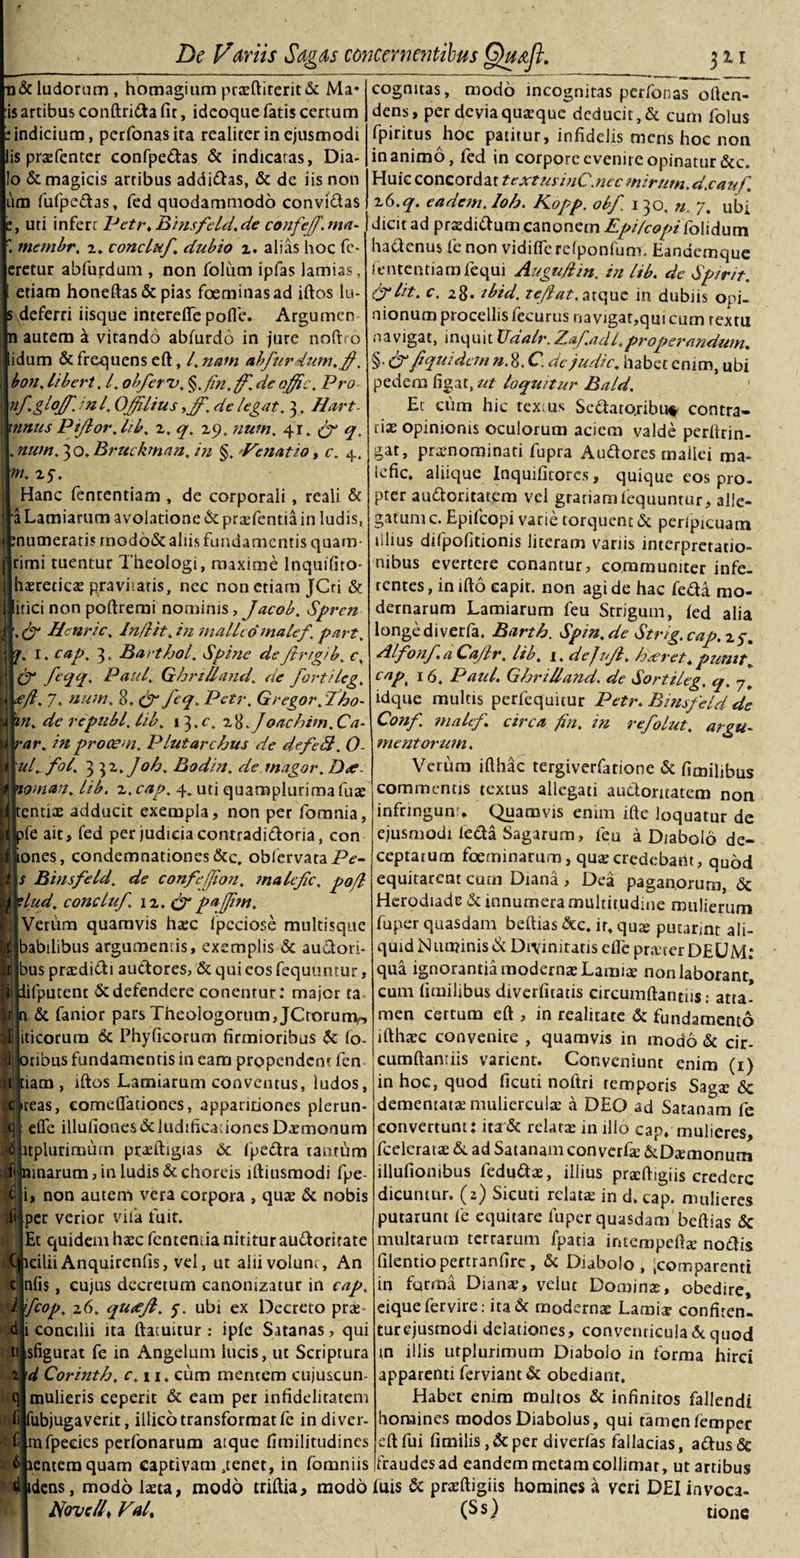 De Variis Sagas concernentibus Quæst.
321
n & ludorum, homagium præstiterit & Ma-
is artibus constricta sit, ideoque satis certum
indicium, personas ita realiter in ejusmodi
lis præsenter conspectas & indicatas, Dia-
lo & magicis artibus addictas, & de iis non
ùm suspectas, sed quodammodo convictas
e, uti infert Petr. Binsfeld. de confess. ma-
membr. 2. conclus. dubio 2. aliàs hoc se-
eretur absurdum, non solùm ipsas lamias,
etiam honestas & pias fœminas ad istos lu-
s deferri iisque interesse posse. Argumen-
n autem à vitando absurdo in jure nostro
lidum & frequens est, l. nam absurdum. ff.
bon. libert. l. observ. §. fin. ff. de offic. Pro-
nf. gloss. in l. Offilius, ff. de legat. 3. Hart-
mnus Pistor. lib. 2. q. 29. num. 41. & q.
. num. 30. Bruckman. in §. Venatio, c. 4.
m. 25.
Hanc sententiam, de corporali, reali &
a Lamiarum avolatione & præsentiâ in ludis,
enumeratis modò & aliis fundamentis quàm-
rimi tuentur Theologi, maximè Inquisito-
hæreticæ pravitatis, nec non etiam JCti &
litici non postremi nominis, Jacob. Spren-
. & Henric. Instit. in malleo malef. part.
q. 1. cap. 3. Barthol. Spine de strigib. c.
& seqq. Paul. Ghrilland. de sortileg.
æst. 7. num. 8. & seq. Petr. Gregor. Tho-
n. de republ. lib. 13. c. 28. Joachim. Ca-
rar. in proœm. Plutarchus de defect. O-
ul. fol. 332. Joh. Bodin. de magor. Dæ-
noman. lib. 2. cap. 4. uti quamplurima suæ
tentiæ adducit exempla, non per somnia,
pse ait, sed per judicia contradictoria, con-
iones, condemnationes &c. observata Pe-
s Binsfeld. de confession. malefic. post
elud. conclus. 12. & passim.
Verùm quamvis hæc speciosè multisque
babilibus argumentis, exemplis & auctori-
bus prædicti auctores, & qui eos sequuntur,
disputent & defendere conentur: major ta-
n & sanior pars Theologorum, JCtorum,
iticorum & Physicorum firmioribus & so-
oribus fundamentis in eam propendent sen-
tiam, istos Lamiarum conventus, ludos,
reas, comessationes, apparitiones plerun-
esse illusiones & ludificationes Dæmonum
utplurimùm præstigias & spectra tantùm
minarum, in ludis & choreis istiusmodi spe-
i, non autem vera corpora, quæ & nobis
per verior visa fuit.
Et quidem hæc sententia nititur auctoritate
ncilii Anquirensis, vel, ut alii volunt, An
nsis, cujus decretum canonizatur in cap.
iscop. 26. quæst. 5. ubi ex Decreto præ-
i concilii ita statuitur: ipse Satanas, qui
sfigurat se in Angelum lucis, ut Scriptura
d Corinth. c. 11. cùm mentem cujuscun-
mulieris ceperit & eam per infidelitatem
subjugaverit, illicò transformat se in diver-
m species personarum atque similitudines
entem quam captivam tenet, in somniis
dens, modò læta, modò tristia, modò
Novell. Val.
cognitas, modò incognitas personas osten-
dens, per devia quæque deducit, & cum solus
spiritus hoc patitur, infidelis mens hoc non
in animo, sed in corpore evenire opinatur &c.
Huic concordat textus in C. nec mirum. d. caus.
26. q. eadem. Ioh. Kopp. obs. 130. n. 7. ubi
dicit ad prædictum canonem Episcopi solidum
hactenus se non vidisse responsum. Eandemque
sententiam sequi Augustin. in lib. de Spirit.
& lit. c. 28. ibid. testat. atque in dubiis opi-
nionum procellis securus navigat, qui cum textu
navigat, inquit Udalr. Zas. ad l. properandum.
§. & siquidem n. 8. C. de judic. habet enim, ubi
pedem figat, ut loquitur Bald.
Et cùm hic textus Sectatoribus contra-
riæ opinionis oculorum aciem valdè perstrin-
gat, prænominati supra Auctores mallei ma-
lefic. aliique Inquisitores, quique eos pro-
pter auctoritatem vel gratiam sequuntur, alle-
gatum c. Episcopi variè torquent & perspicuam
illius dispositionis literam variis interpretatio-
nibus evertere conantur, communiter infe-
rentes, in isto capit. non agi de hac sectâ mo-
dernarum Lamiarum seu Strigum, sed alia
longè diversa. Barth. Spin. de Strig. cap. 25.
Alfons. à Castr. lib. 1. de just. hæret. punit.
cap. 16. Paul. Ghrilland. de Sortileg. q. 7.
idque multis persequitur Petr. Binsfeld de
Conf. malef. circa fin. in resolut. argu-
mentorum.
Verùm isthàc tergiversatione & similibus
commentis textus allegati auctoritatem non
infringunt. Quamvis enim iste loquatur de
ejusmodi sectâ Sagarum, seu à Diabolò de-
ceptarum fœminarum, quæ credebant, quòd
equitarent cum Dianâ, Deâ paganorum, &
Herodiade & innumera multitudine mulierum
super quasdam bestias &c. it. quæ putarint ali-
quid Numinis & Divinitatis esse præter DEUM:
quâ ignorantiâ modernæ Lamiæ non laborant,
cum similibus diversitatis circumstantiis: atta-
men certum est, in realitate & fundamentò
isthæc convenire, quamvis in modò & cir-
cumstantiis varient. Conveniunt enim (1)
in hoc, quod sicuti nostri temporis Sagæ &
dementatæ mulierculæ à DEO ad Satanam se
convertunt: ita & relatæ in illò cap. mulieres,
sceleratæ & ad Satanam conversæ & Dæmonum
illusionibus seductæ, illius præstigiis credere
dicuntur. (2) Sicuti relatæ in d. cap. mulieres
putarunt se equitare super quasdam bestias &
multarum terrarum spatia intempestæ noctis
silentio pertransire, & Diabolo, comparenti
in formâ Dianæ, velut Dominæ, obedire,
eique servire: ita & modernæ Lamiæ confiten-
tur ejusmodi delationes, conventicula & quod
in illis utplurimum Diabolo in forma hirci
apparenti serviant & obediant.
Habet enim multos & infinitos fallendi
homines modos Diabolus, qui tamen semper
est sui similis, & per diversas fallacias, actus &
fraudes ad eandem metam collimat, ut artibus
suis & præstigiis homines à veri DEI invoca-
(Ss)
tione